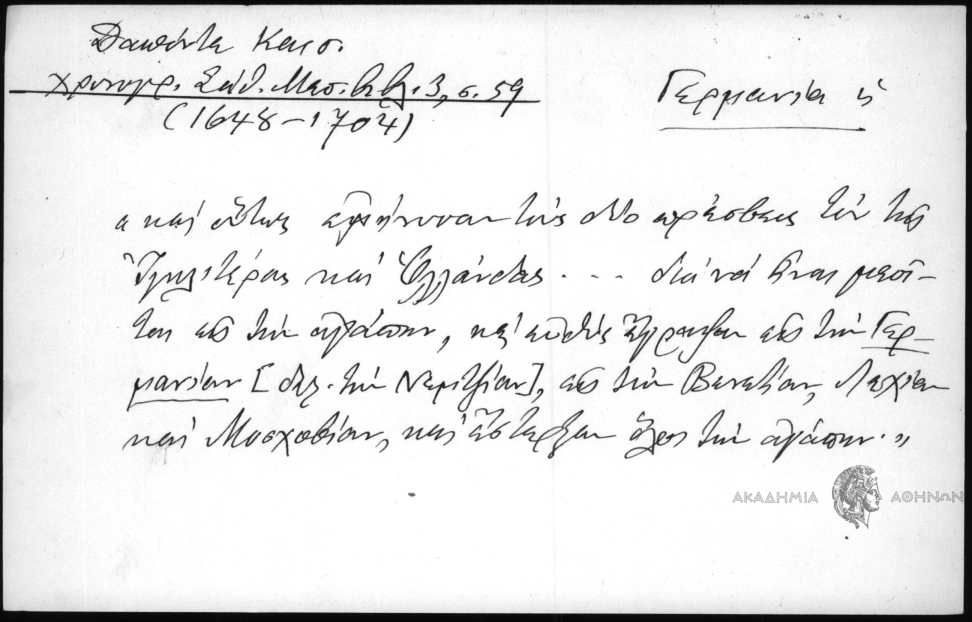 Δαπόντε Καισ.
χρονογρ. Σάθ. Μεσ. βιβλ. 3, σ. 59
(1648-1704)
Γερμανία ἡ
« καὶ οὕτως ἐμήνυσαν τοὺς δύο πρέσβεις τὸν τῆς
Ἰγκλιτέρας καὶ Ὁλλάντας ... διὰ νὰ εἶναι μεσί-
ται εἰς τὴν ἀγάπην, καὶ εὐθὺς ἔγραψαν εἰς τὴν Γερ-
μανίαν [δηλ. τὴν Νεμιτζίαν], εἰς τὴν Βενετίαν, Λεχίαν
καὶ Μοσχοβίαν, καὶ ἔστερξαν ὅλοι τὴν ἀγάπην. »
ΑΚΑΔΗΜΙΑ ΑΘΗΝΩΝ